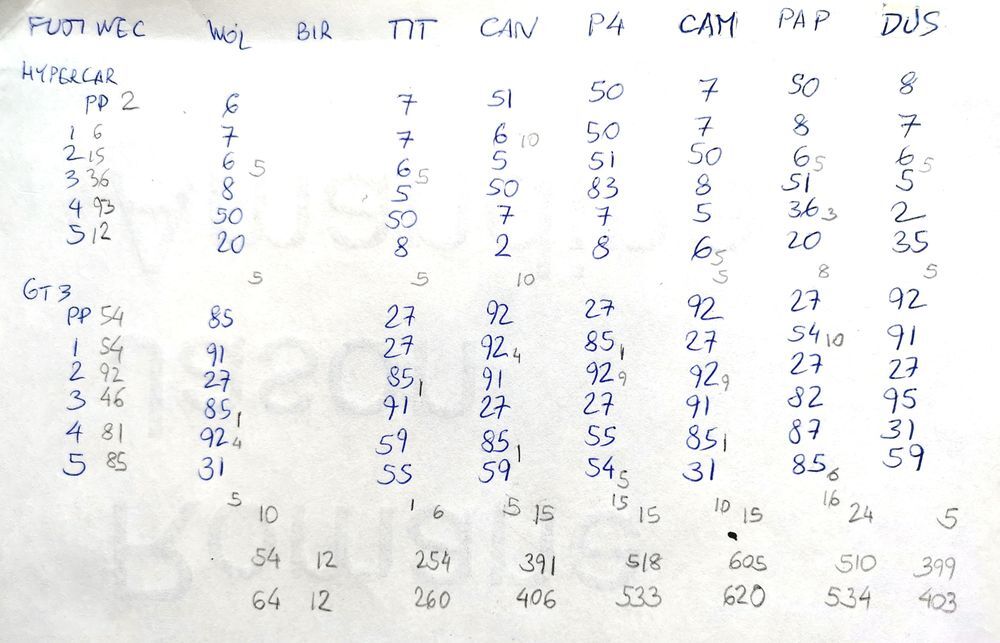 FUJI WEC WOL BIR TIT CAN P4 CAM PAP DUS
HYPERCAR
PP 2 6 7 51 50 7 50 8
1 6 7 7 6 10 50 7 8 7
2 15 6 5 6 5 5 51 50 6 5 6 5
3 36 8 5 50 83 8 51 5
4 93 50 50 7 7 5 36 3 2
5 12 20 8 2 8 6 5 20 35
5 5 10 5 8 5
GT3
PP 54 85 27 92 27 92 27 92
1 54 91 27 92 4 85 1 27 54 10 91
2 92 27 85 1 91 92 9 92 9 27 27
3 46 85 1 91 27 27 91 82 95
4 81 92 4 59 85 1 55 85 1 87 31
5 85 31 55 59 54 5 31 85 6 59
5 10 1 6 5 15 15 15 10 15 16 24 5
54 12 254 391 518 605 510 399
64 12 260 406 533 620 534 403